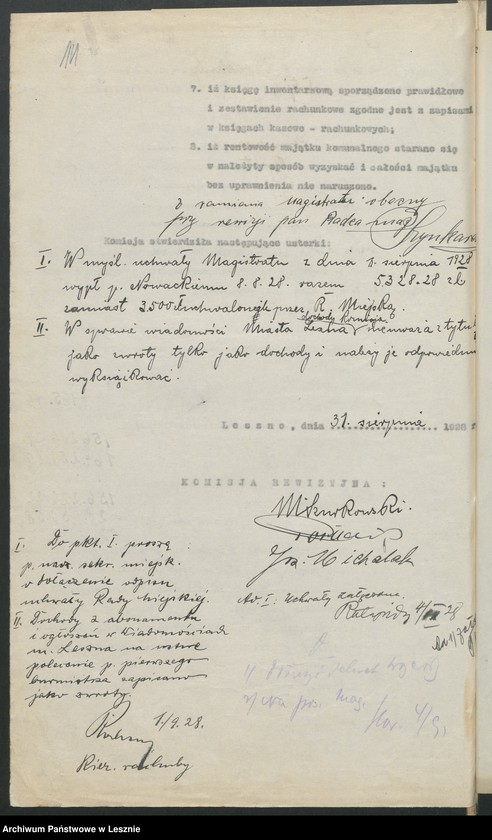 7. iż księgę inwentarzową sporządzono prawidłowo
i zestawienie rachunkowe zgodne jest z zapisami
w księgach kasowo - rachunkowych;
8. iż rentowość majątku komunalnego starano się
w należyty sposób wyzyskać i całości majątku
bez uprawnienia nie naruszono.
z ramienia magistratu obecny
przy rewizji pan Radca
Komisja stwierdziła następujące usterki:
I. W myśl. uchwały Magistratu z dnia 1. sierpnia 1928
wypł. p. Nowackiemu 8.8.28. razem 5328.28 zł
zamiast 3.500 zł uchwalonych przez R. Miejską.
II. W sprawie wiadomości Miasta Leszna
jako zwroty tylko jako dochody i należy je
wyksiążkować.
Leszno, dnia 31. sierpnia 1928 r
KOMISJA REWIZYJNA:
Michalak
I. Do pkt. I. proszę
p. nacz. sekr. miejsk.
o dołączenie odpisu
uchwały Rady Miejskiej.
II. Dochody z abonamentu
i ogłoszeń w Wiadomościach
m. Leszna na ustne
polecenie p. pierwszego
burmistrza zapisano
jako zwroty.
1/9.28.
Ad. I: Uchwały załączone.
4/IX 28
4/9
Archiwum Państwowe w Lesznie